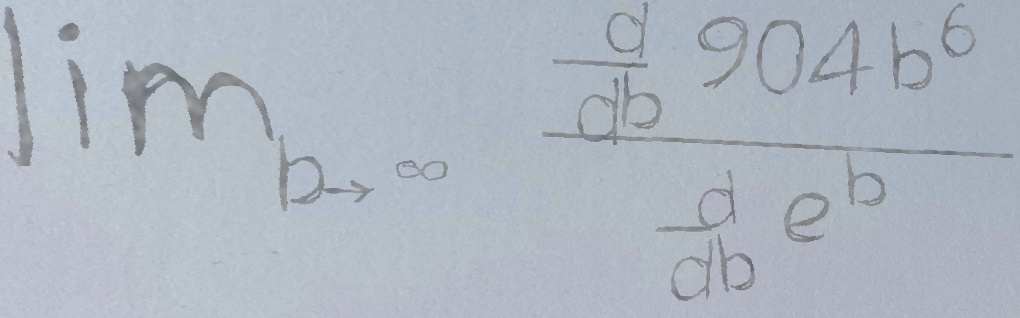 \lim_{b \to \infty} \frac{\frac{d}{db} 904b^6}{\frac{d}{db} e^b}